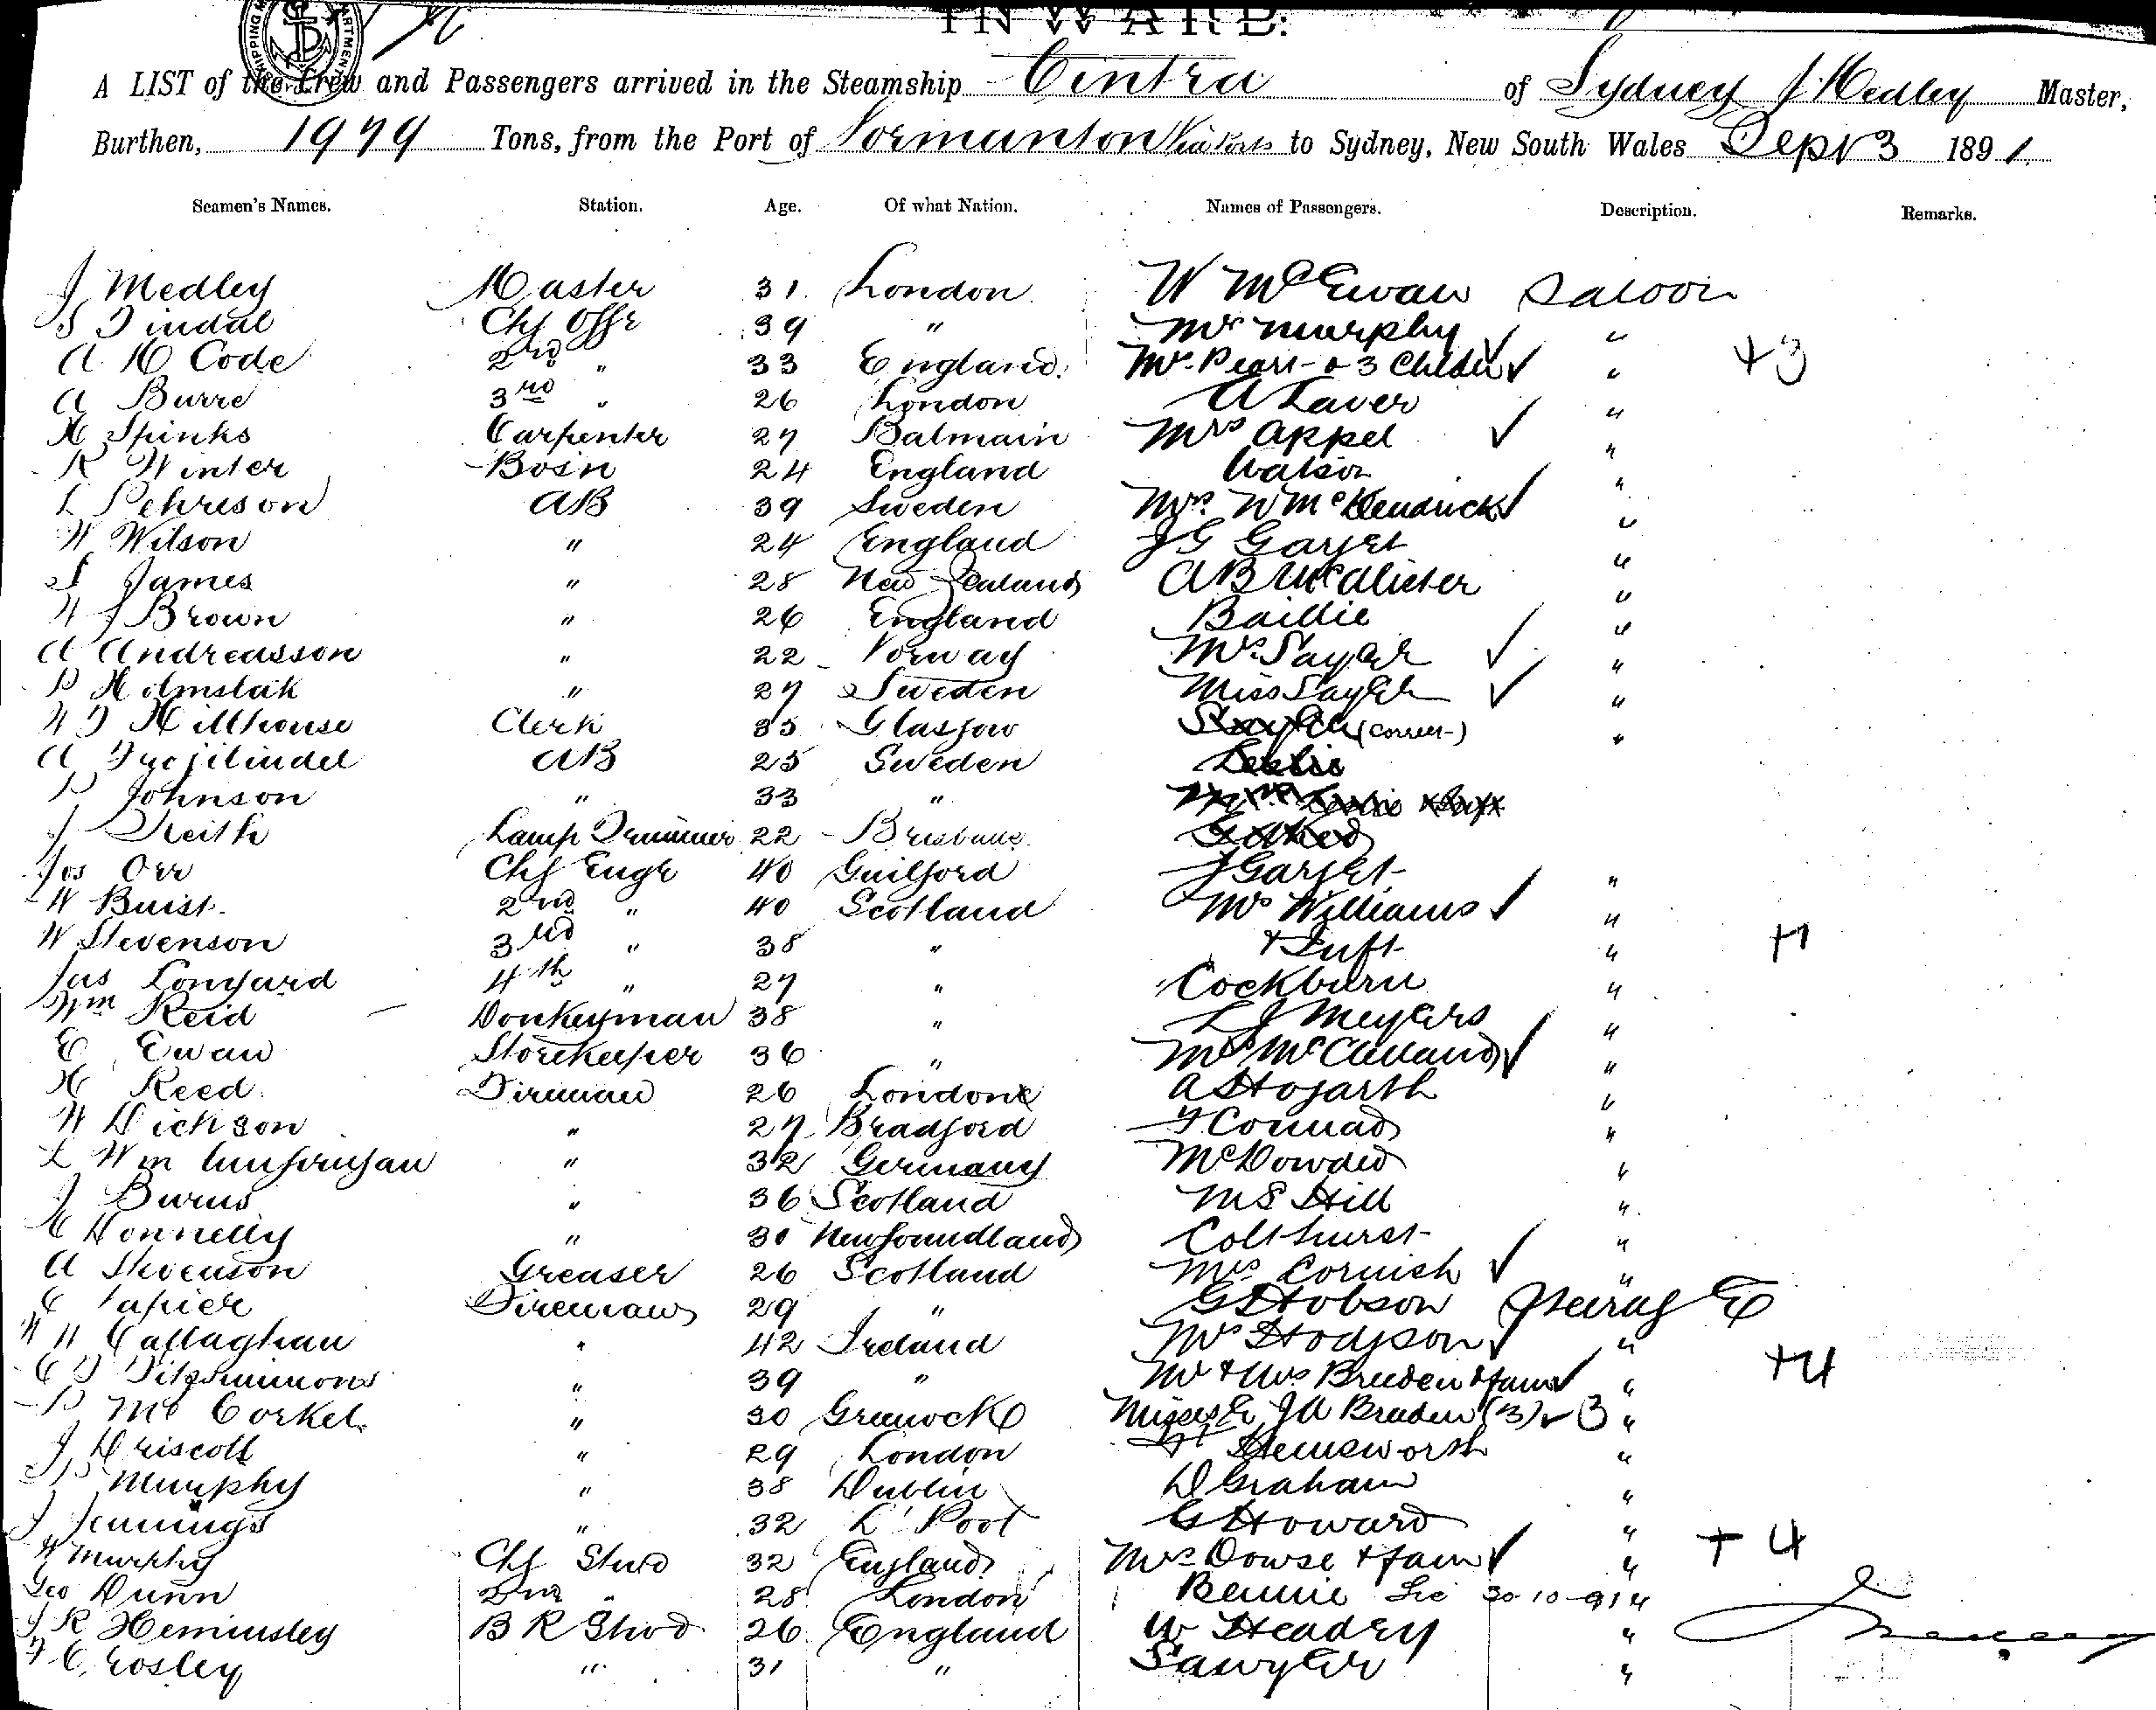 INWARD.
A LIST of the Crew and Passengers arrived in the Steamship Cintra of Sydney J Medley Master,
Burthen, 1979 Tons, from the Port of Normanton Via Ports to Sydney, New South Wales Sept 3 1891.
Seamen's Names. Station. Age. Of what Nation. Names of Passengers. Description. Remarks.
J Medley Master 31 London W McEwan Saloon
S Tindal Chf Offr 39 " Mrs Murphy ✓ "
A H Code 2nd " 33 England Mrs Peart & 3 Childn ✓ " +3
A Burre 3rd " 26 London A Laver "
H Spinks Carpenter 27 Balmain Mrs Appel ✓ "
R Winter Bosn 24 England Watson "
L Pehrison AB 39 Sweden Mrs W McKendrick ✓ "
W Wilson " 24 England J G Garget "
S James " 28 New Zealand A B McAlister "
W J Brown " 26 England Baillie "
A Andreasson " 22 Norway Mrs Sayer ✓ "
P Holmstak " 27 Sweden Miss Sayer ✓ "
W T Hillhouse Clerk 35 Glasgow (correct) "
A AB 25 Sweden Leslie
P Johnson " 33 "
J Keith Lamp Trimmer 22 Brisbane
Jos Orr Chf Engr 40 Guilford J Garget "
W Buist 2nd " 40 Scotland Mrs Williams ✓ "
W Stevenson 3rd " 38 " & Inft " +1
Jas Longard 4th " 27 " Cockburn "
Wm Reid Donkeyman 38 " L J Meyers "
E Ewan Storekeeper 36 " Mrs McClelland ✓ "
H Reed Fireman 26 London A Hogarth "
W Dickson " 27 Bradford F Conrad "
L Wm " 32 Germany McDowded "
J Burns " 36 Scotland M S Hill "
C Donnelly " 30 Newfoundland Colthurst "
A Stevenson Greaser 26 Scotland Mrs Cornish ✓ "
C Napier Fireman 29 " G Hobson Steerage
W H Callaghan " 42 Ireland Mrs Hodgson ✓ "
C T Fitzsimmons " 39 " Mr & Mrs Breeden & fam ✓ " +4
P McCorkel " 30 Greenock Misses E, J A Braden (3) ✓ 3 "
J Driscoll " 29 London Hemsworth "
J P Murphy " 38 Dublin D Graham "
J Jennings " 32 L'Pool G Howard "
W Murphy Chf Stwd 32 England Mrs Dowse & fam ✓ " +4
Geo Dunn 2nd " 28 London Bennie 30-10-91 "
J R Heminsley B R Stwd 26 England W Headey "
F C Cosley " 31 " Sawyer "